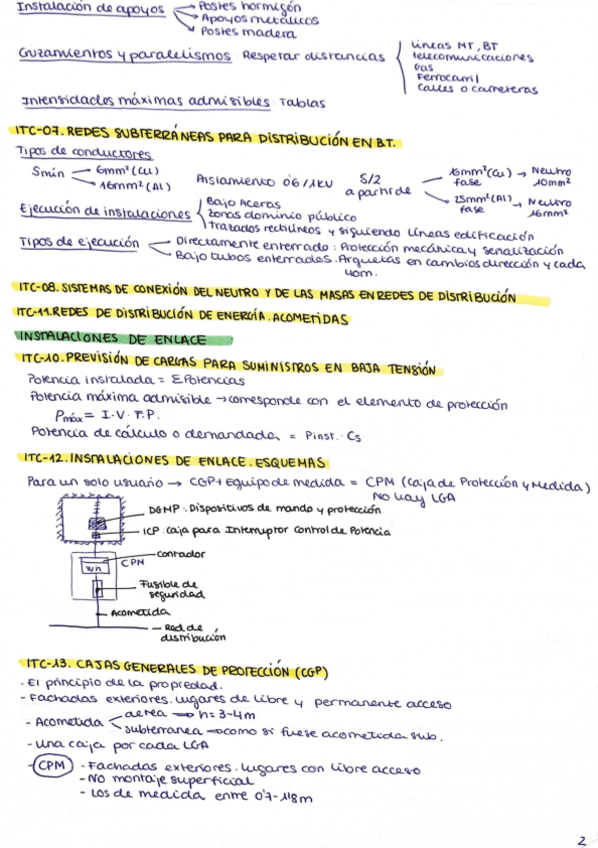 Instalación de apoyos
Postes hormigón
Apoyos metálicos
Postes madera
Cruzamientos y paralelismos Respetar distancias
líneas MT, BT
telecomunicaciones
Gas
Ferrocarril
Calles o carreteras
Intensidades máximas admisibles: Tablas
ITC-07. REDES SUBTERRÁNEAS PARA DISTRIBUCIÓN EN B.T.
Tipos de conductores
Smin
6mm² (Cu)
16mm² (Al)
Aislamiento 0'6/1KV
S/2
a partir de
16mm² (Cu)
fase
Neutro
10mm²
25mm² (Al)
fase
Neutro
16mm²
Ejecución de instalaciones
Bajo Aceras
Zonas dominio público
Trazados rectilíneos y siguiendo líneas edificación
Tipos de ejecución
Directamente enterrado: Protección mecánica y señalización
Bajo tubos enterrados. Arquetas en cambios dirección y cada
40m.
ITC-08. SISTEMAS DE CONEXIÓN DEL NEUTRO Y DE LAS MASAS EN REDES DE DISTRIBUCIÓN
ITC-11. REDES DE DISTRIBUCIÓN DE ENERGÍA. ACOMETIDAS
INSTALACIONES DE ENLACE
ITC-10. PREVISIÓN DE CARGAS PARA SUMINISTROS EN BAJA TENSIÓN
Potencia instalada = ΣPotencias
Potencia máxima admisible → corresponde con el elemento de protección
Pmáx = I · V · F.P.
Potencia de cálculo o demandada = Pinst. · Cs
ITC-12. INSTALACIONES DE ENLACE. ESQUEMAS
Para un solo usuario → CGP + Equipo de medida = CPM (Caja de Protección y Medida)
No hay LGA
DGMP: Dispositivos de mando y protección
ICP. Caja para Interruptor Control de Potencia
Contador
CPM
Wh
Fusible de
seguridad
Acometida
Red de
distribución
ITC-13. CAJAS GENERALES DE PROTECCIÓN (CGP)
- El principio de la propiedad.
- Fachadas exteriores. Lugares de libre y permanente acceso
- Acometida
aerea → h = 3-4m
subterranea → como si fuese acometida sub.
- Una caja por cada LGA
- CPM
- Fachadas exteriores. Lugares con libre acceso
- NO montaje superficial
- Los de medida entre 0'7-1'8m
2